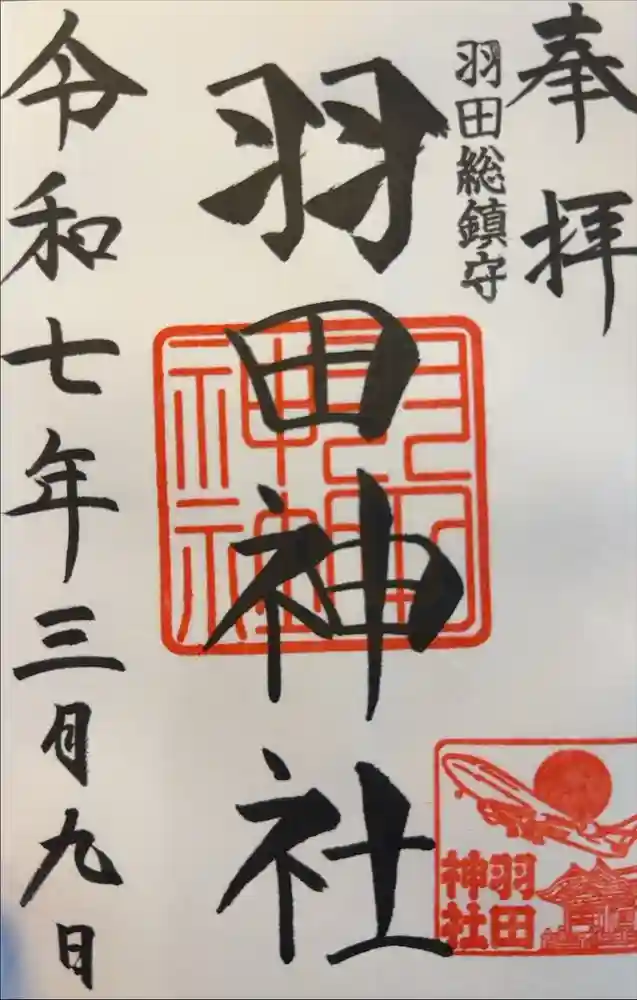 奉拝
羽田総鎮守
羽田神社
令和七年三月九日
羽田
神社
羽田
神社